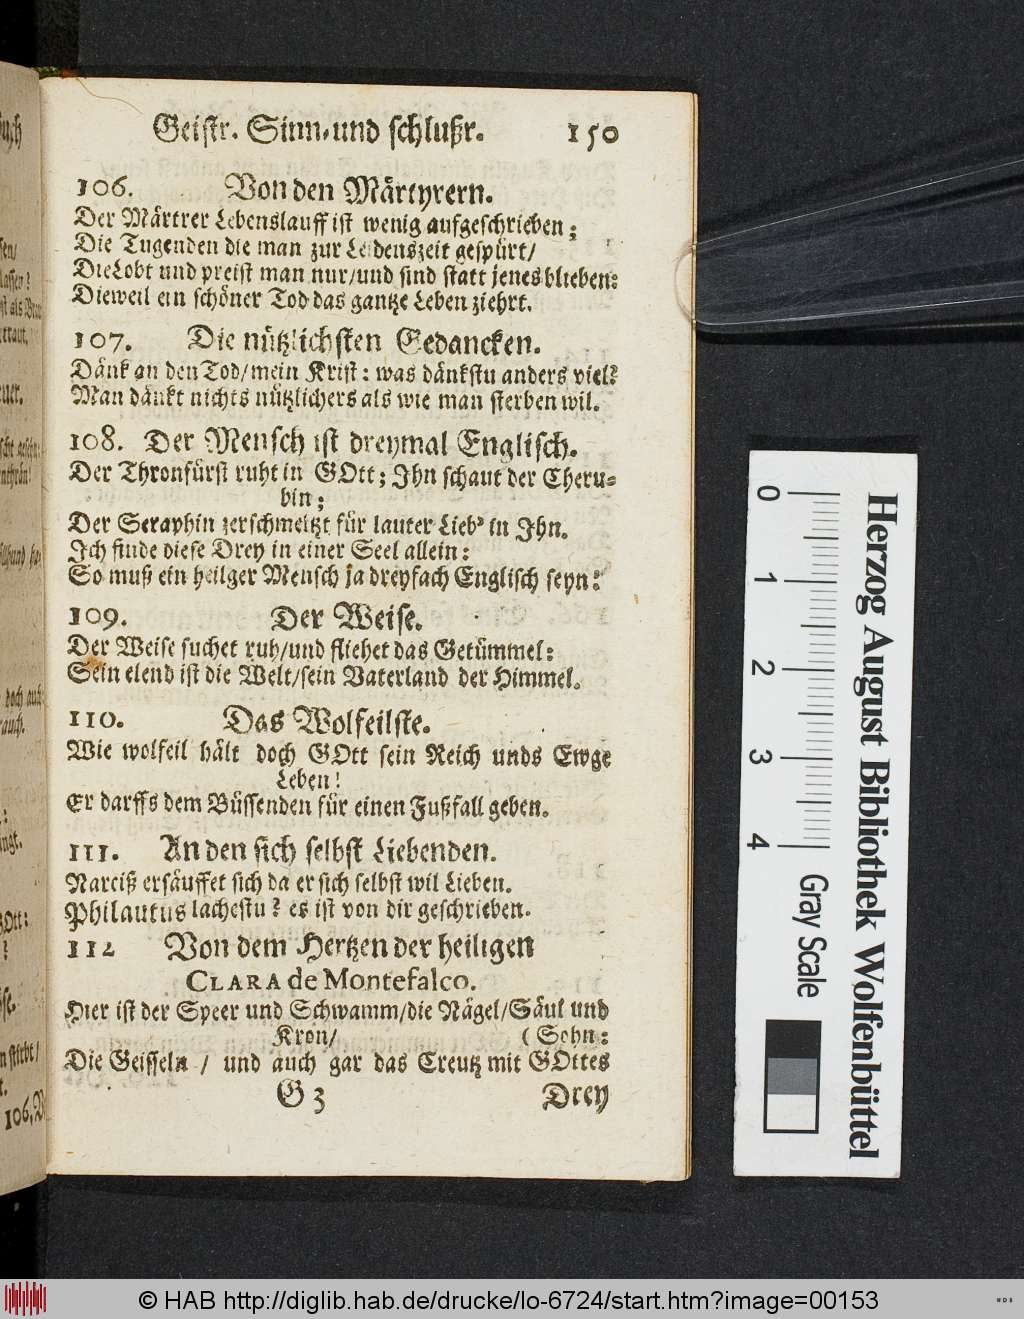 Geistr. Sinn-und schlußr. 150
106. Von den Märtyrern.
Der Märtrer Lebenslauff ist wenig aufgeschrieben;
Die Tugenden die man zur Leidenszeit gespürt/
Die Lobt und preist man nur/und sind statt jenes blieben:
Dieweil ein schöner Tod das gantze Leben ziehrt.
107. Die nützlichsten Gedancken.
Dänk an den Tod/mein Krist: was dänkstu anders viel?
Man dänkt nichts nützlichers als wie man sterben wil.
108. Der Mensch ist dreymal Englisch.
Der Thronfürst ruht in GOtt; Ihn schaut der Cheru-
bin;
Der Seraphin zerschmeltzt für lauter Lieb' in Ihn.
Ich finde diese Drey in einer Seel allein:
So muß ein heilger Mensch ja dreyfach Englisch seyn!
109. Der Weise.
Der Weise suchet ruh/und fliehet das Getümmel:
Sein elend ist die Welt/sein Vaterland der Himmel.
110. Das Wolfeilste.
Wie wolfeil hält doch GOtt sein Reich unds Ewge
Leben!
Er darffs dem Büssenden für einen Fußfall geben.
111. An den sich selbst Liebenden.
Narciß ersäuffet sich da er sich selbst wil Lieben.
Philautus lachestu? es ist von dir geschrieben.
112 Von dem Hertzen der heiligen
CLARA de Montefalco.
Hier ist der Speer und Schwamm/die Nägel/Säul und
Kron/ (Sohn:
Die Geisseln / und auch gar das Creutz mit GOttes
G 3 Drey
Herzog August Bibliothek Wolfenbüttel
0 1 2 3 4 Gray Scale
© HAB http://diglib.hab.de/drucke/lo-6724/start.htm?image=00153